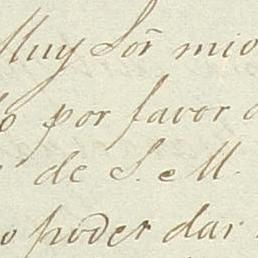 Muy Sor̃ mio
por favor
de S. M.
poder dar